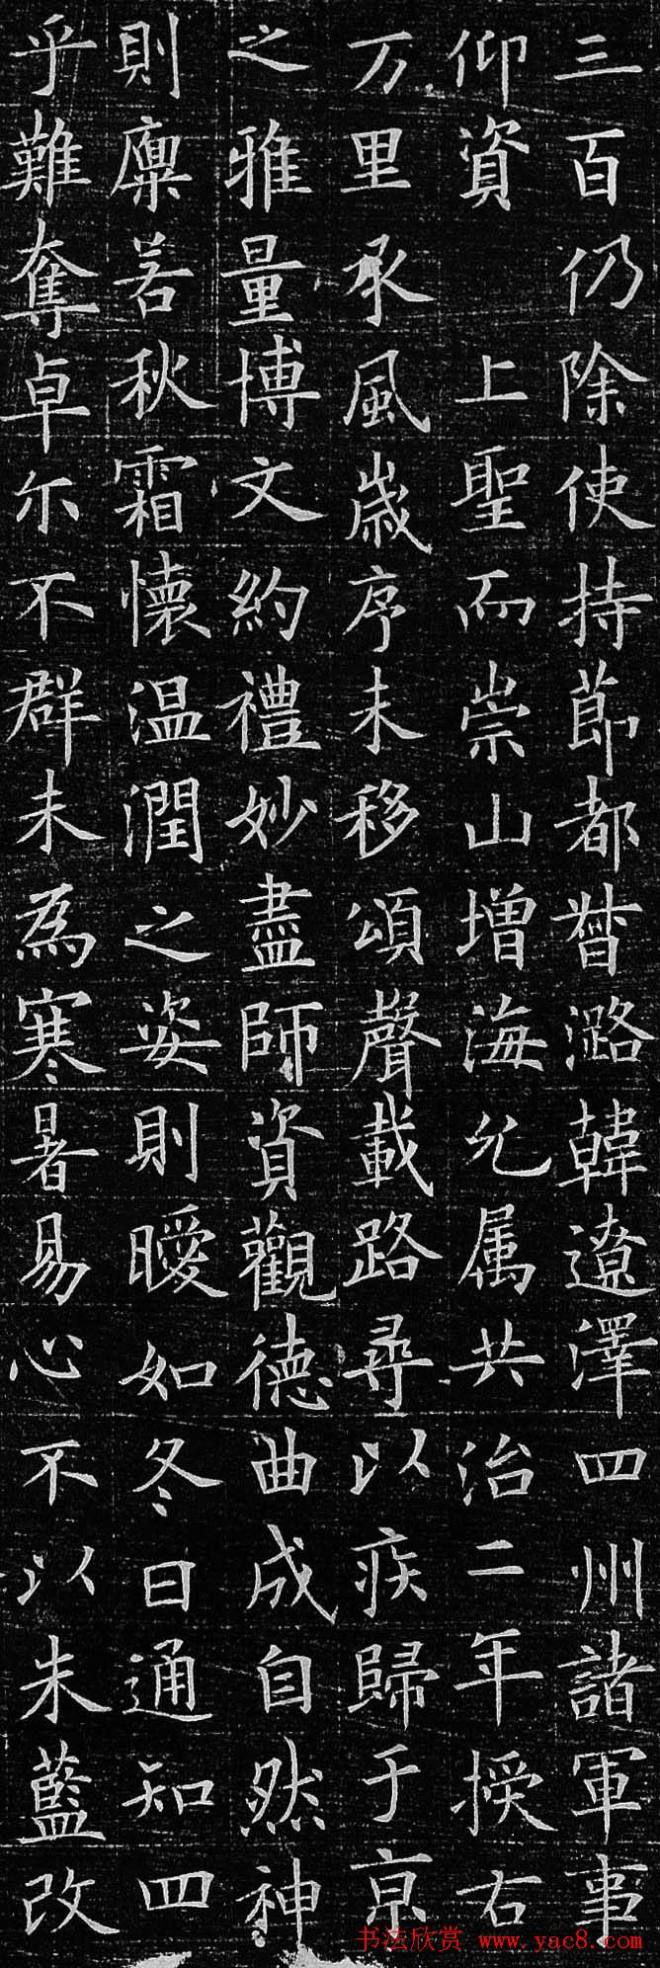 三百仍除使持莭都督潞韓遼澤四州諸軍事
仰資上聖而崇山增海允属共治二年授右
万里承風歲序未移頌聲載路尋以疾歸于京
之雅量博文約禮妙盡師資觀德曲成自然神
則廩若秋霜懷温潤之姿則曖如冬日通知四
乎難奪卓尓不群未為寒暑易心不以朱藍改
书法欣赏 www.yac8.com